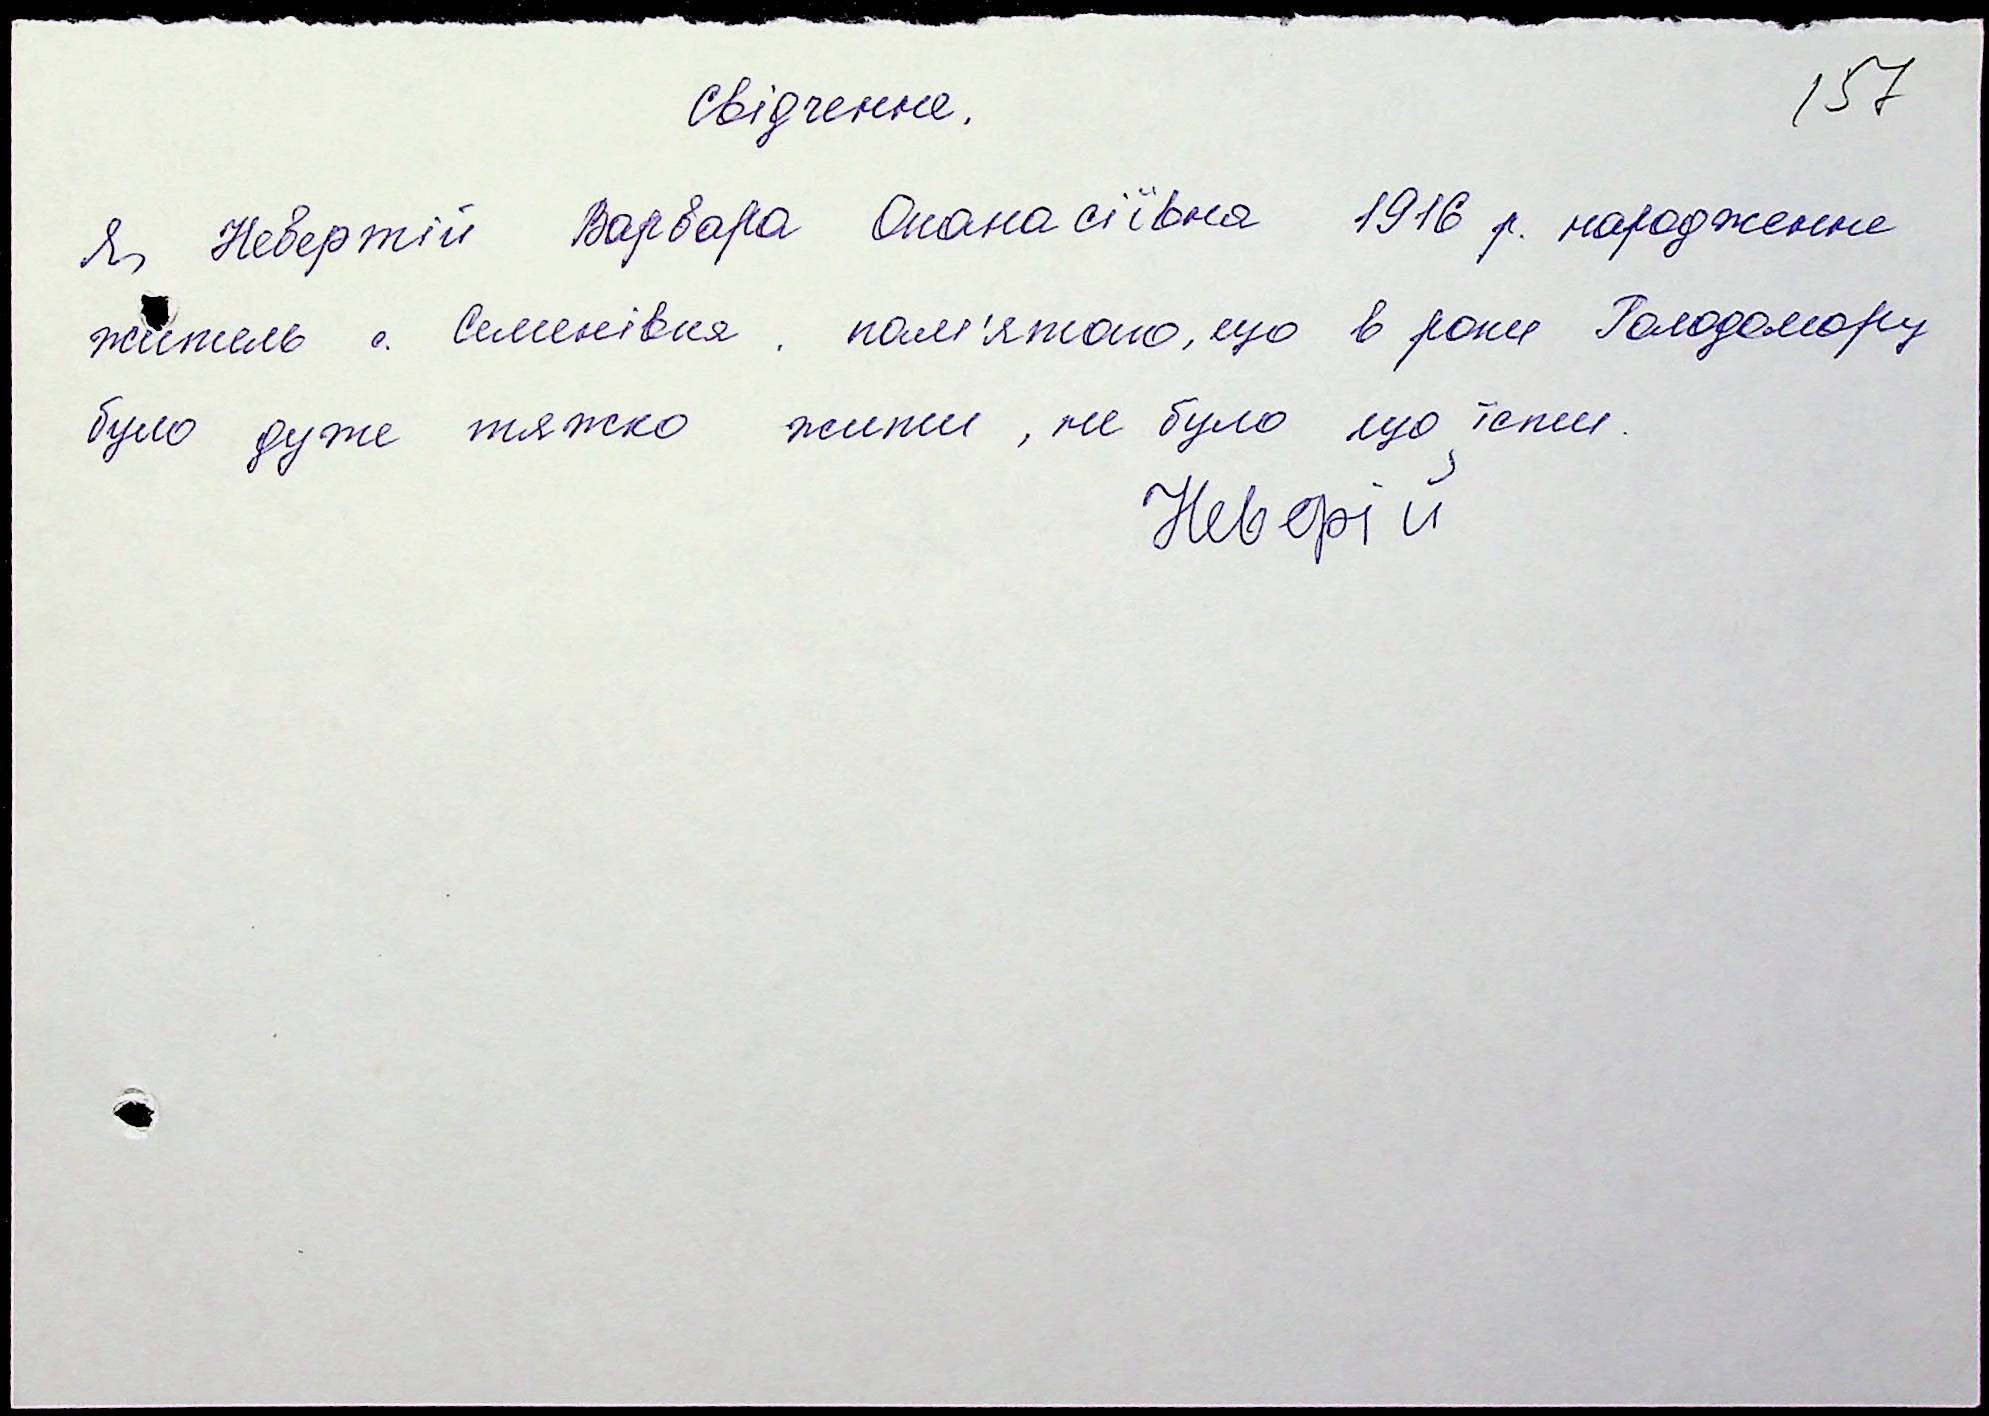 157
Свідчення.
Я, Невертій Варвара Опанасіївна 1916 р. народження
житель с. Семенівка. пам'ятаю, що в роки Голодомору
було дуже тяжко жити, не було що їсти.
Неверій